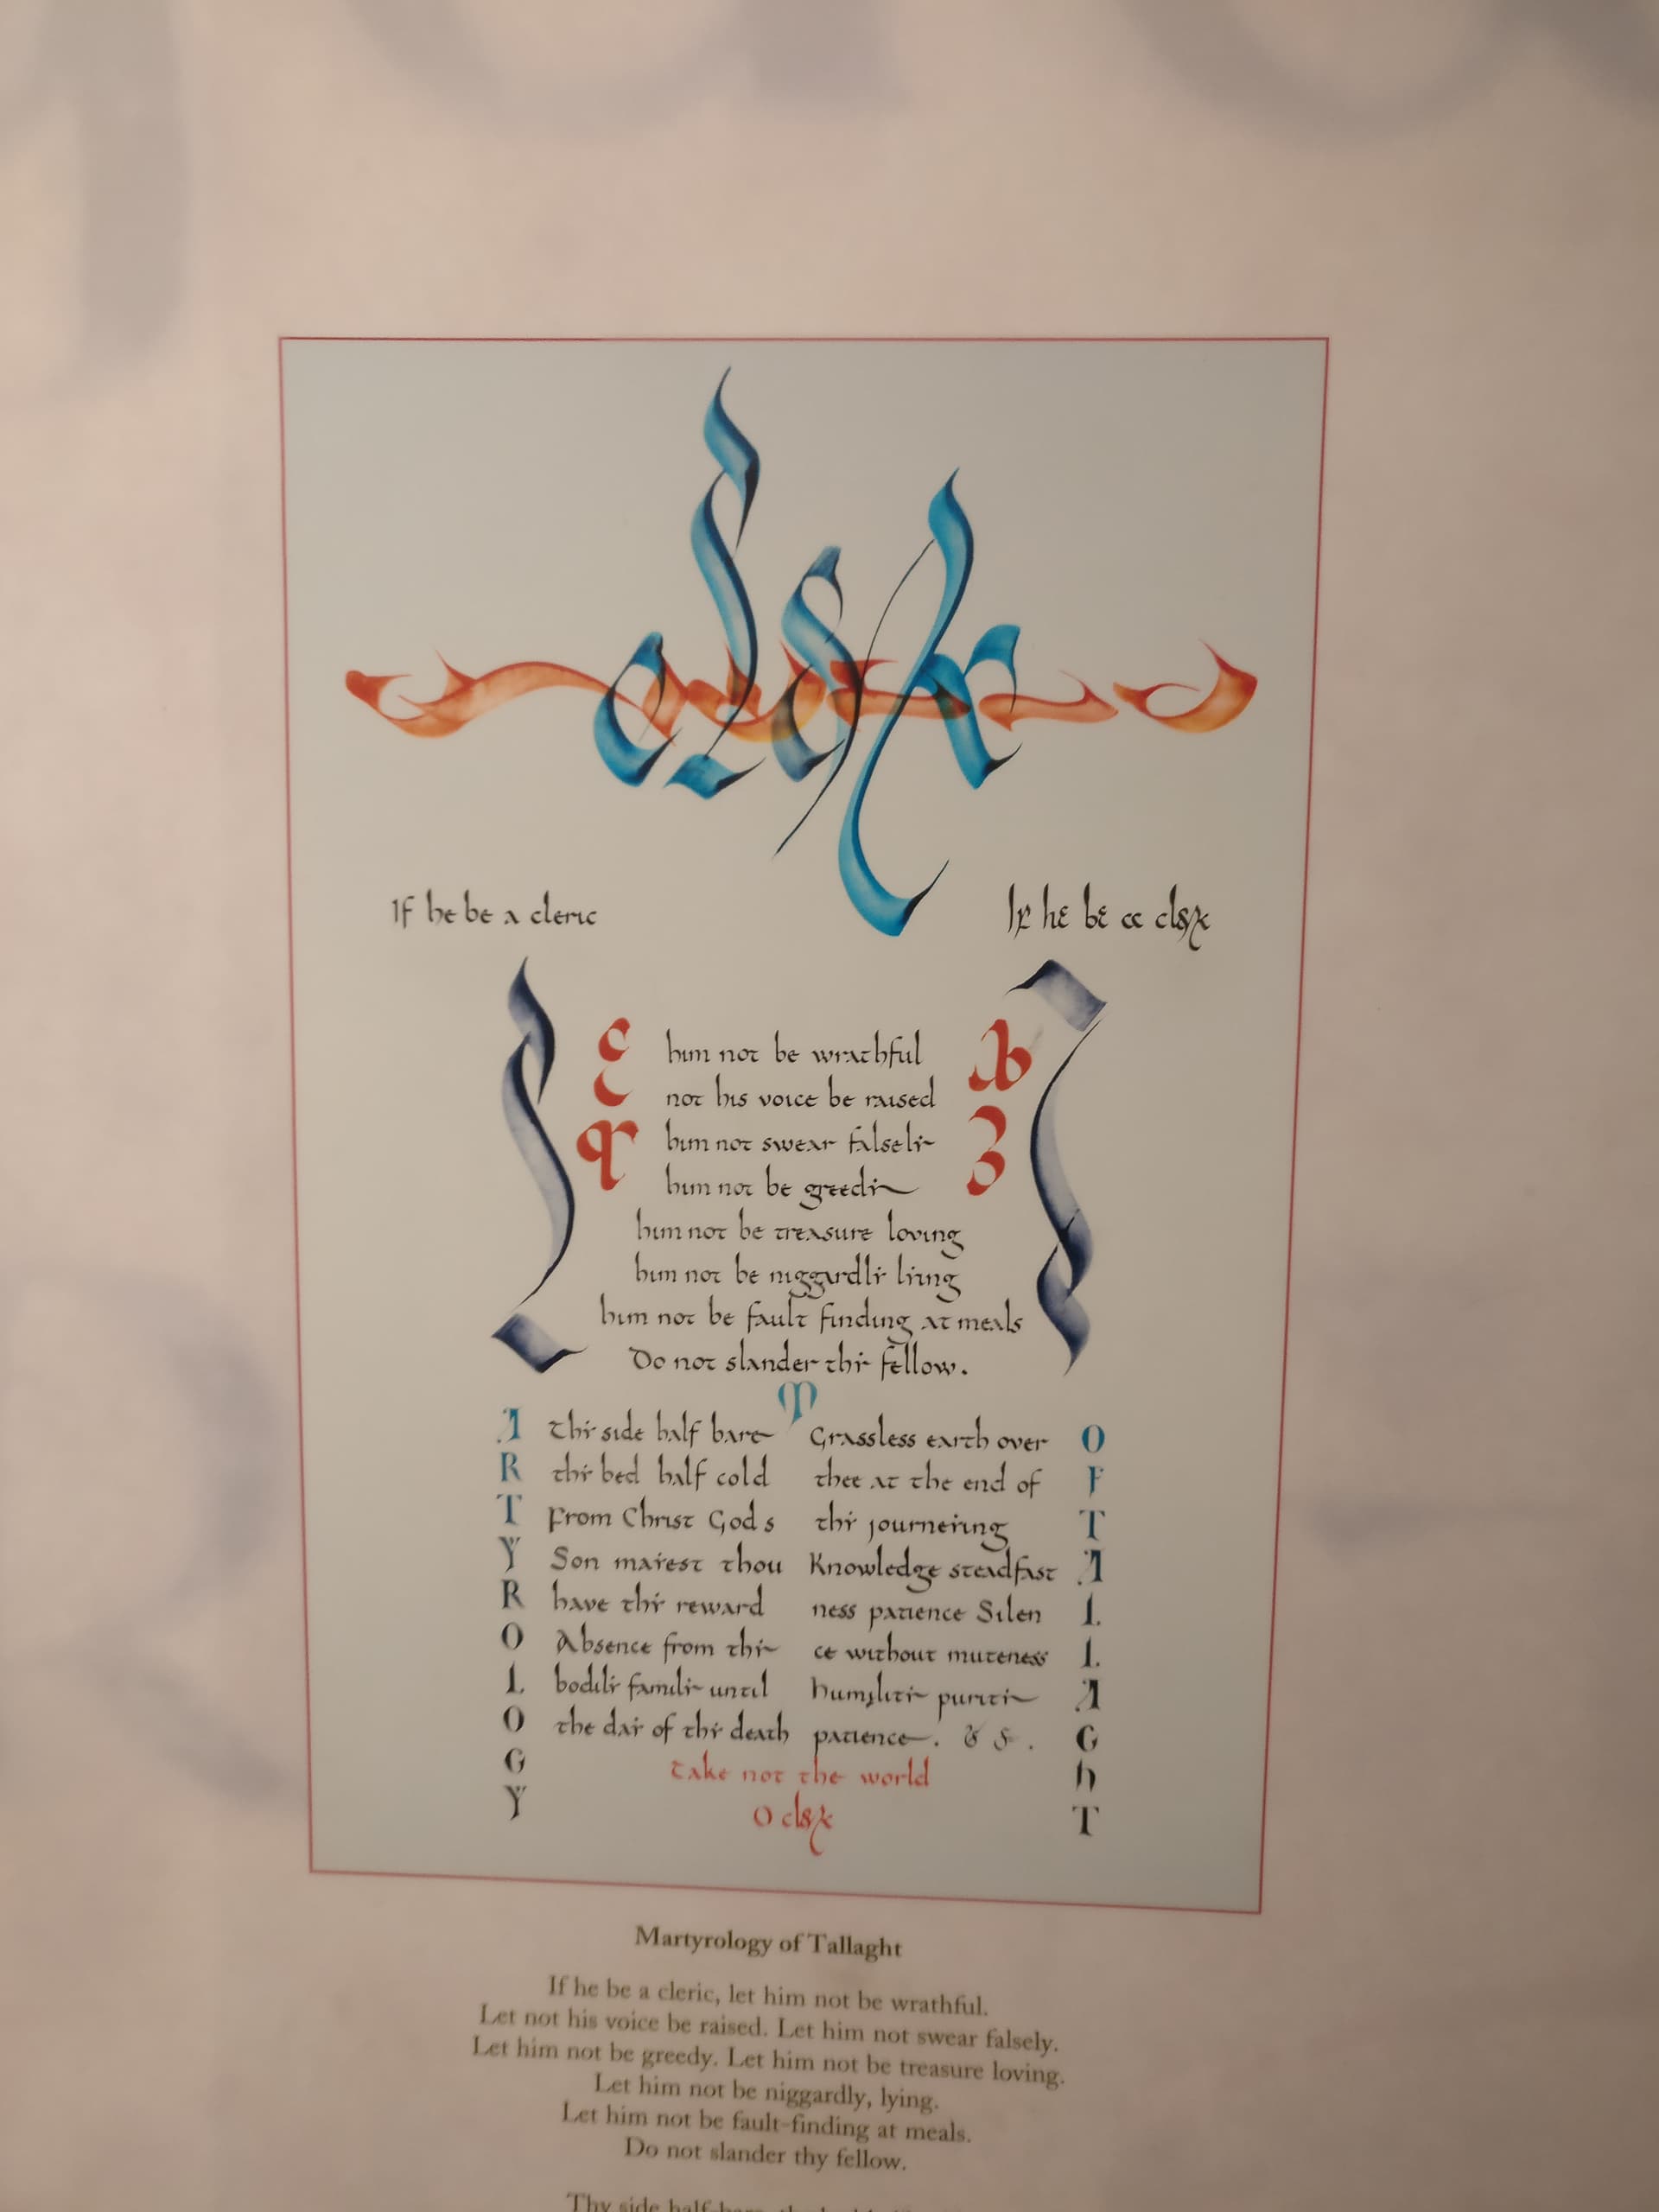 If he be a cleric
If he be a clerk
him not be wrathful
not his voice be raised
him not swear falsely
him not be greedy
him not be treasure loving
him not be niggardly lying
him not be fault finding at meals
Do not slander thy fellow.
M
A
R
T
Y
R
O
L
O
G
Y
Thy side half bare
thy bed half cold
From Christ God s
Son mayest thou
have thy reward
Absence from thy
bodily family until
the day of thy death
Grassless earth over
thee at the end of
thy journeying
Knowledge steadfast
ness patience Silen
ce without muteness
humility purity
patience.
O
F
T
A
L
L
A
G
h
T
take not the world
O clerk
Martyrology of Tallaght
If he be a cleric, let him not be wrathful.
Let not his voice be raised. Let him not swear falsely.
Let him not be greedy. Let him not be treasure loving.
Let him not be niggardly, lying.
Let him not be fault-finding at meals.
Do not slander thy fellow.
Thy side half-bare,